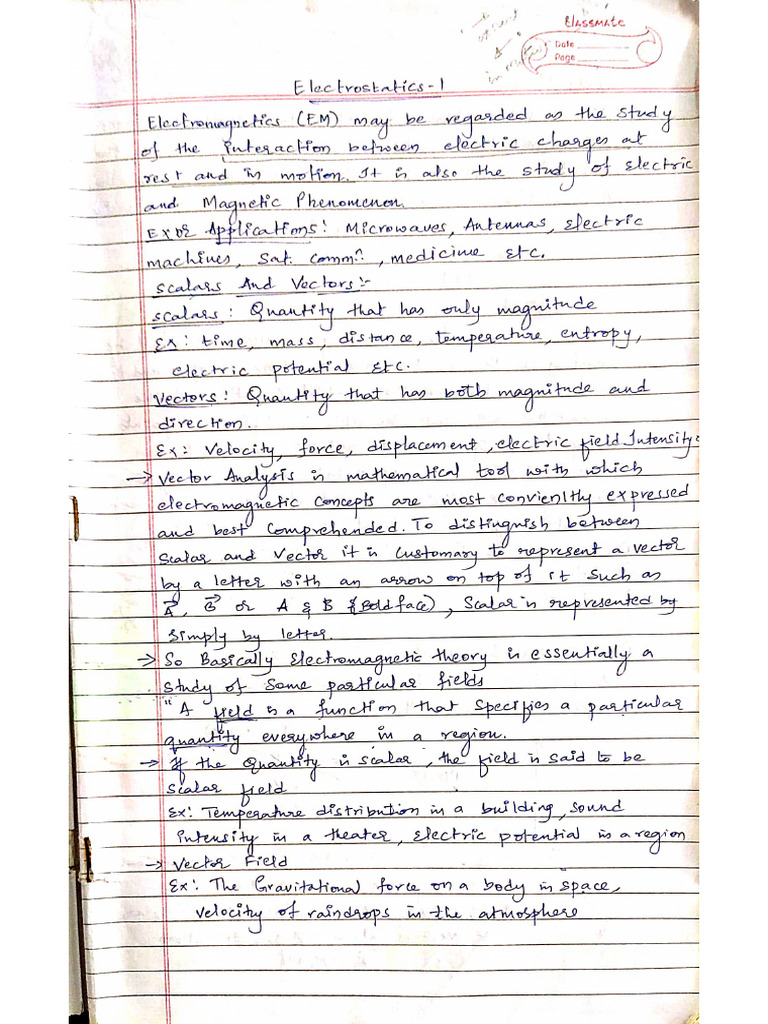 CLASSMATE
Date
Page
Electrostatics-1
Electromagnetics (EM) may be regarded as the study
of the interaction between electric charges at
rest and in motion. It is also the study of electric
and Magnetic Phenomenon.
Ex or Applications: Microwaves, Antennas, Electric
machines, Sat. commⁿ, medicine etc.
Scalars And Vectors:-
Scalars: Quantity that has only magnitude
Ex: time, mass, distance, temperature, entropy,
electric potential etc.
Vectors: Quantity that has both magnitude and
direction.
Ex: Velocity, force, displacement, electric field Intensity
→ Vector Analysis is mathematical tool with which
electromagnetic concepts are most convienltly expressed
and best comprehended. To distinguish between
Scalar and Vector it is customary to represent a vector
by a letter with an arrow on top of it such as
A⃗, B⃗ or A & B {Bold face), Scalar is represented by
simply by letter.
→ So Basically Electromagnetic theory is essentially a
study of some particular fields
"A field is a function that specifies a particular
quantity everywhere in a region.
→ If the Quantity is scalar, the field is said to be
scalar field
Ex: Temperature distribution in a building, sound
intensity in a theater, electric potential in a region
→ Vector Field
Ex: The Gravitational force on a body in space,
velocity of raindrops in the atmosphere